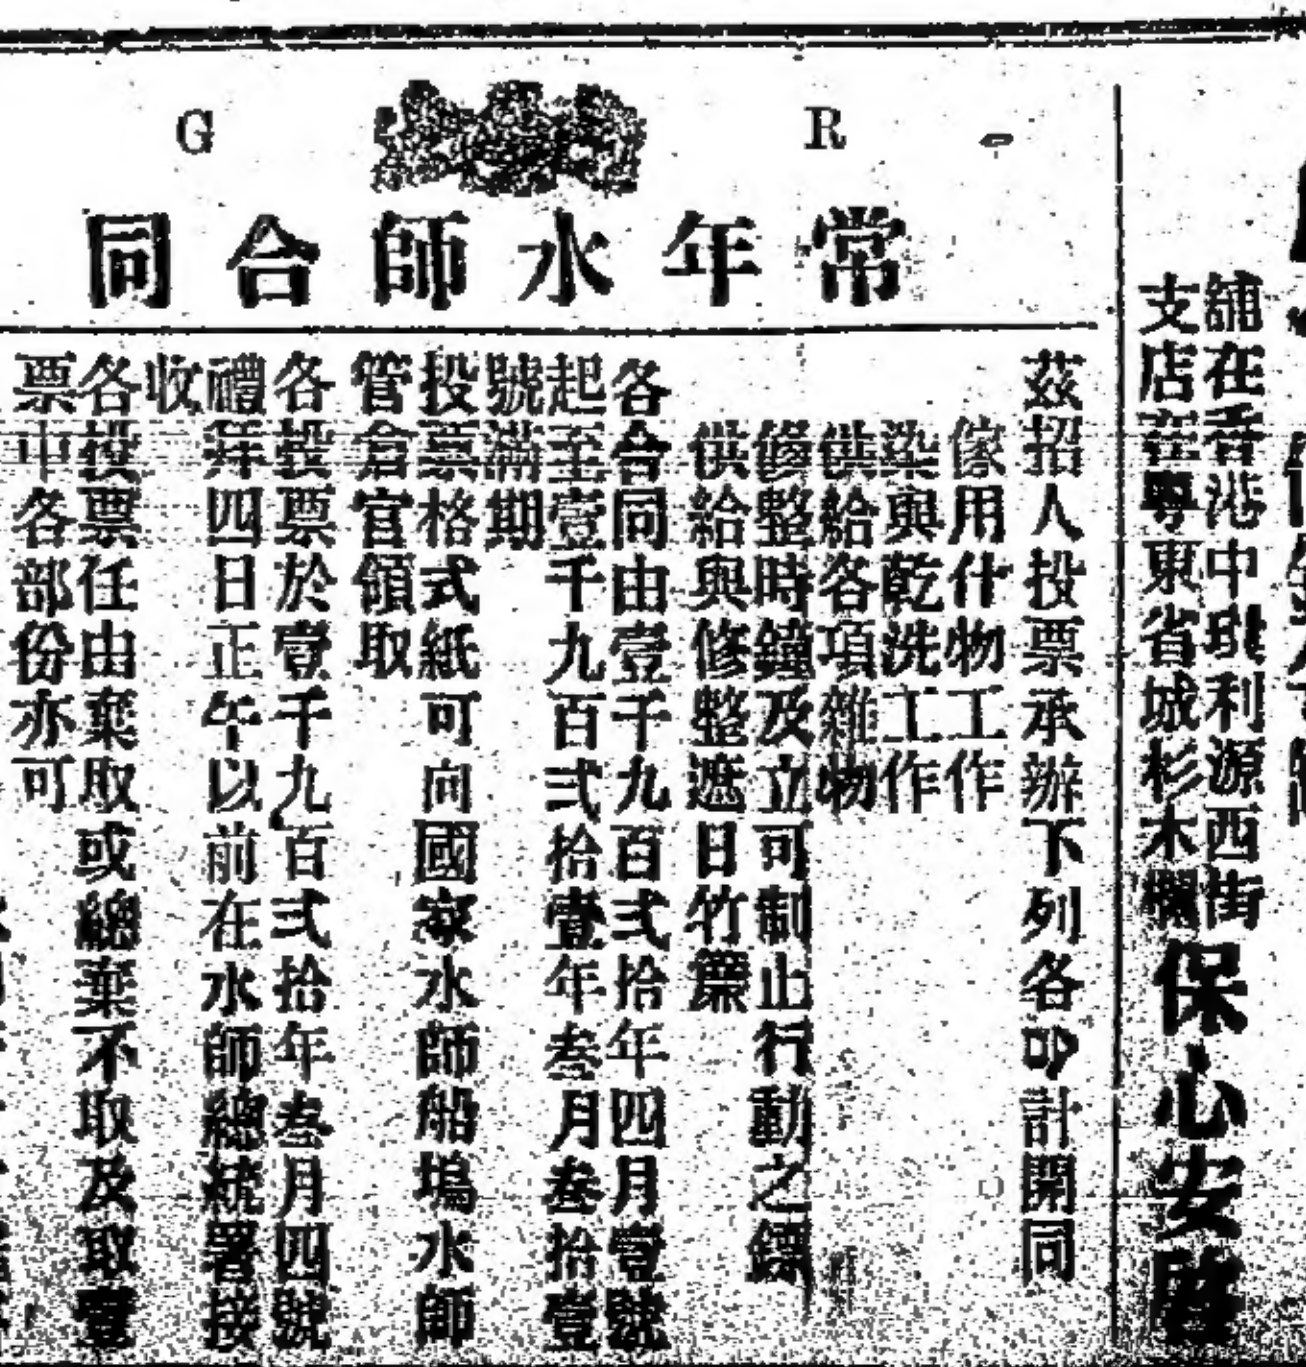 舖在香港中環利源西街
支店在粵東省城杉木欄
保心安
G R
常年水師合同
茲招人投票承辦下列各叩計開同
傢用什物工作
染與乾洗工作
供給各項雜物
修整時鐘及立可制止行動之鏢
供給與修整遮日竹簾
各合同由壹千九百弍拾年四月壹號
起至壹千九百弍拾壹年叁月叁拾壹
號滿期
投票格式紙可向國家水師船塢水師
管倉官領取
各投票於壹千九百弍拾年叁月四號
禮拜四日正午以前在水師總統署接
收
各投票任由棄取或總棄不取及取壹
票中各部份亦可